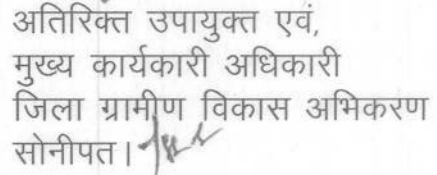 अतिरिक्त उपायुक्त एवं,
मुख्य कार्यकारी अधिकारी
जिला ग्रामीण विकास अभिकरण
सोनीपत।